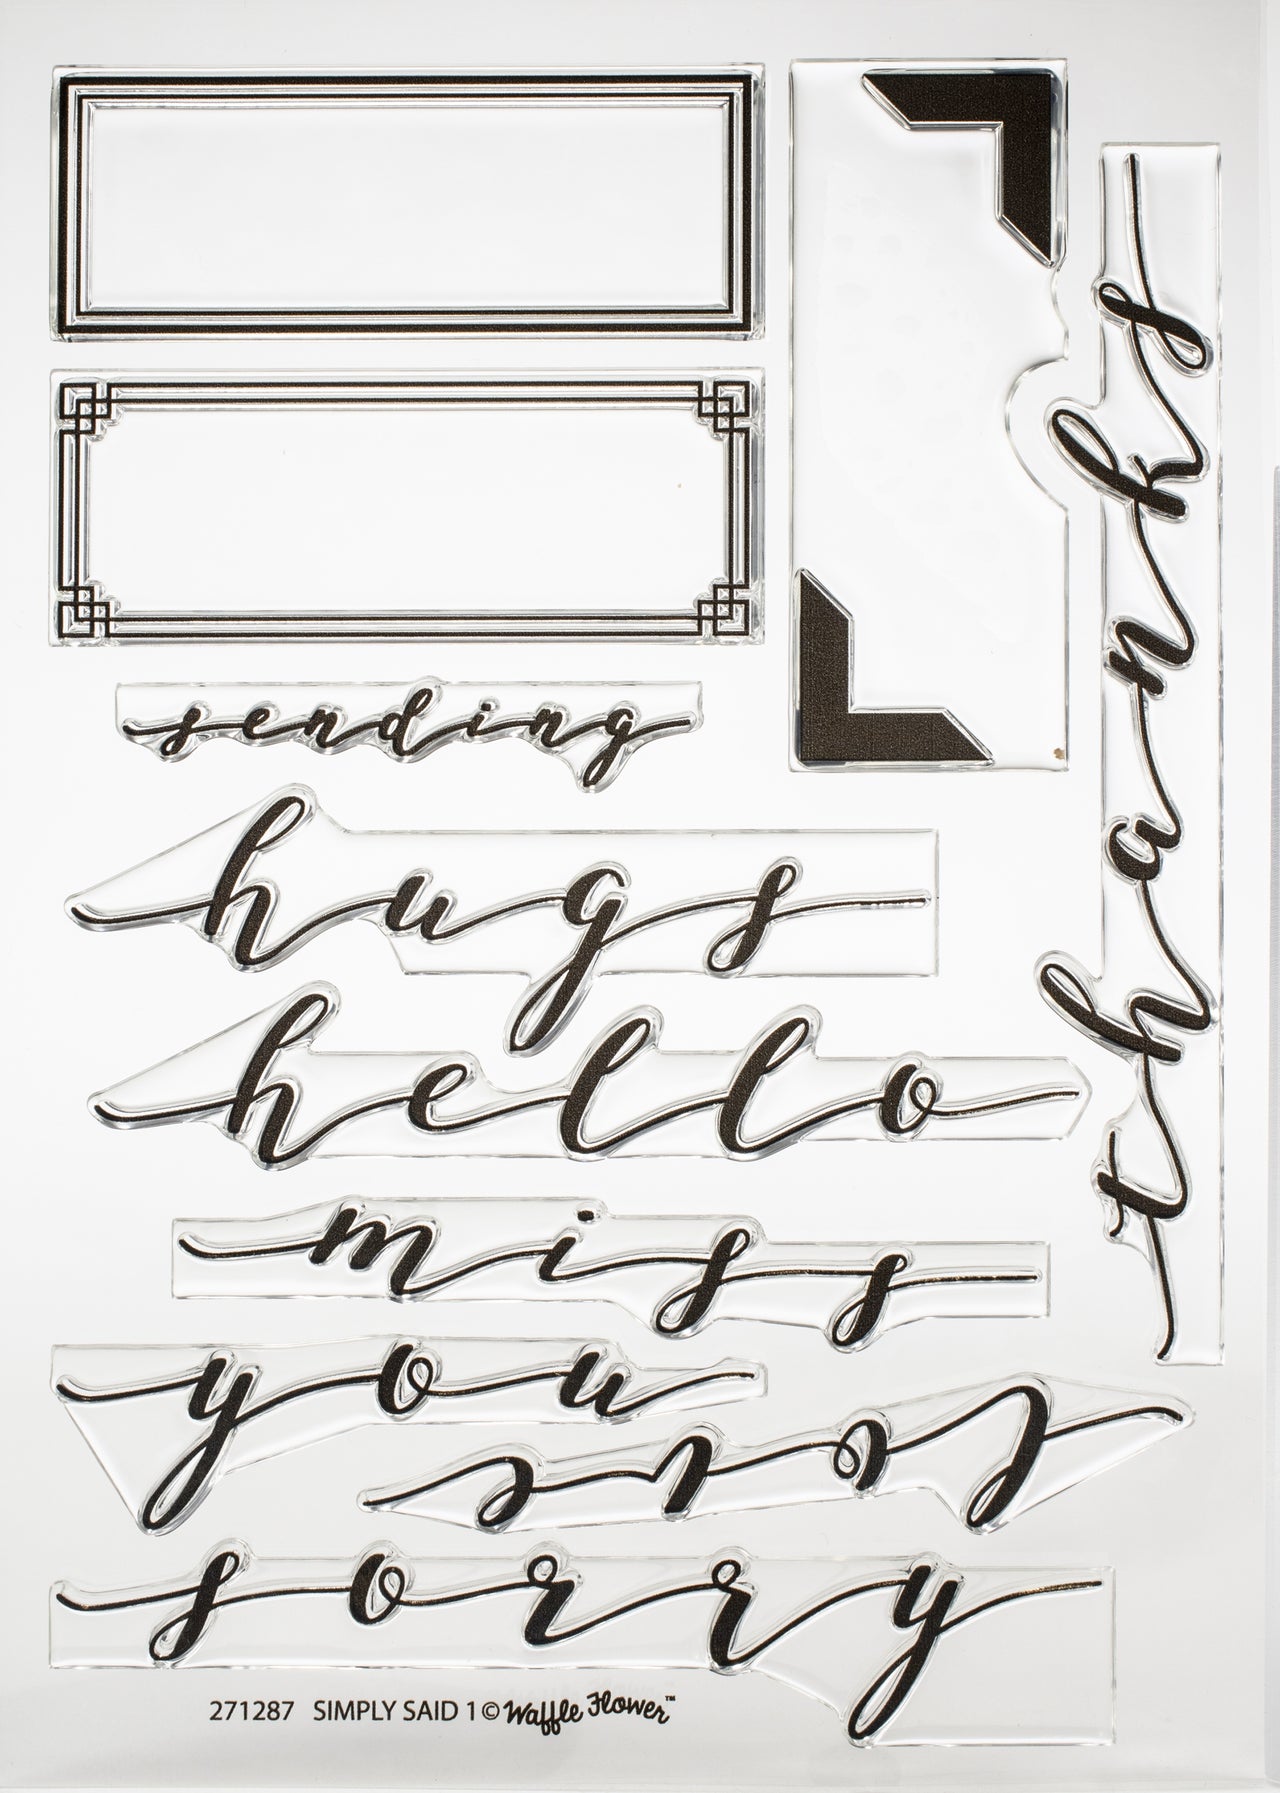 thanks
sending
hugs
hello
miss
you
love
sorry
271287 SIMPLY SAID 1 © Waffle Flower™